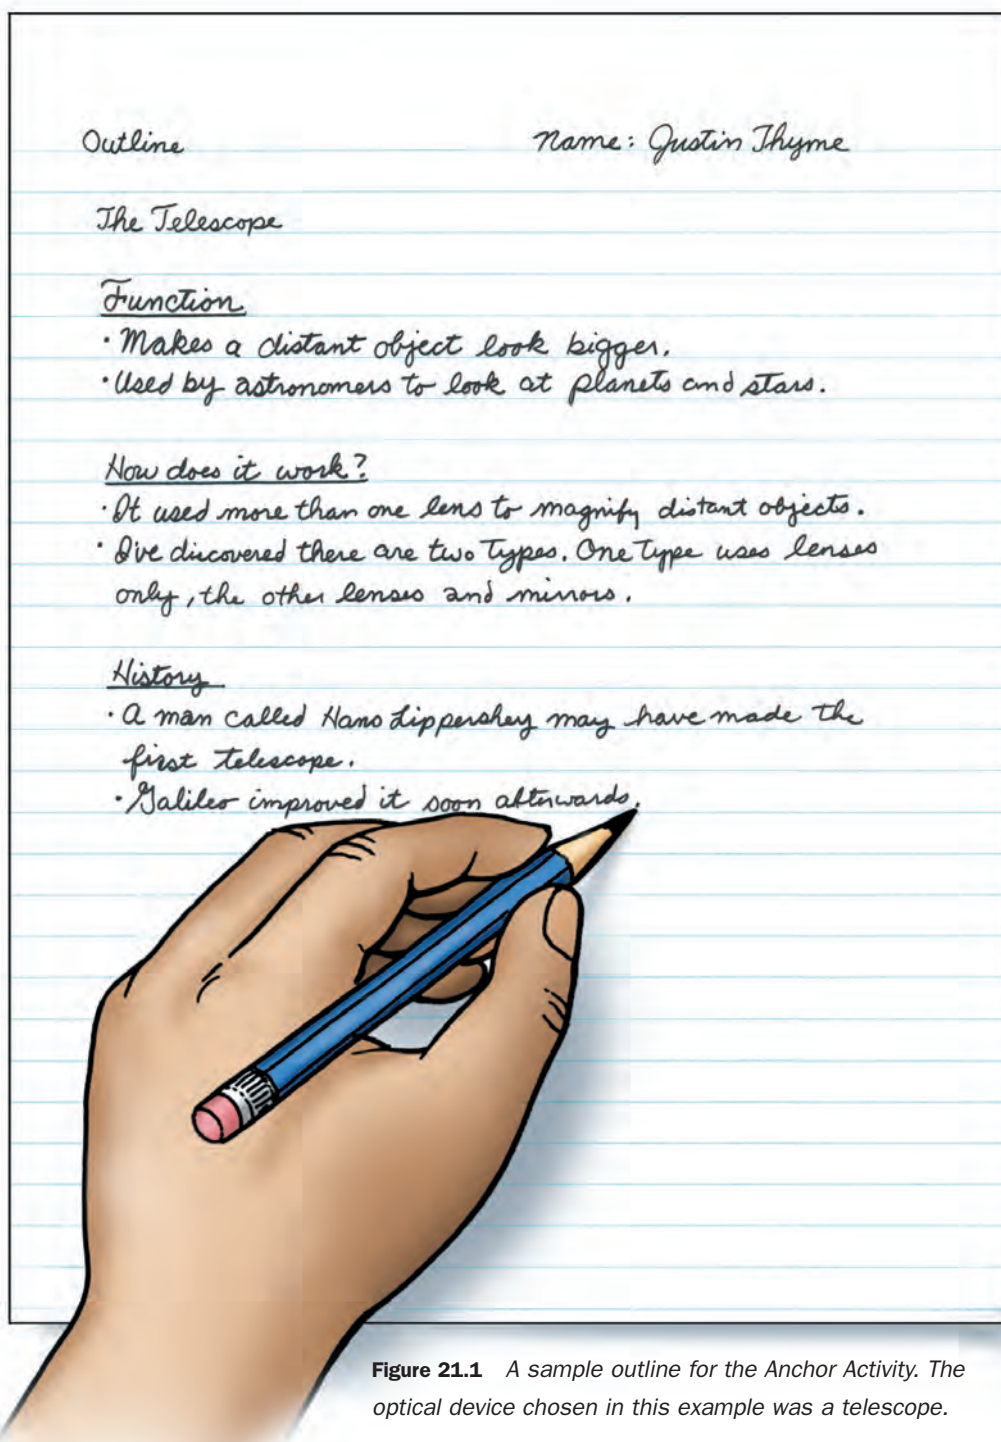 Outline Name: Justin Thyme
The Telescope
Function
· Makes a distant object look bigger.
· Used by astronomers to look at planets and stars.
How does it work?
· It used more than one lens to magnify distant objects.
· I've discovered there are two types. One type uses lenses
only, the other lenses and mirrors.
History
· A man called Hans Lippershey may have made the
first telescope.
· Galileo improved it soon afterwards.
Figure 21.1 A sample outline for the Anchor Activity. The
optical device chosen in this example was a telescope.